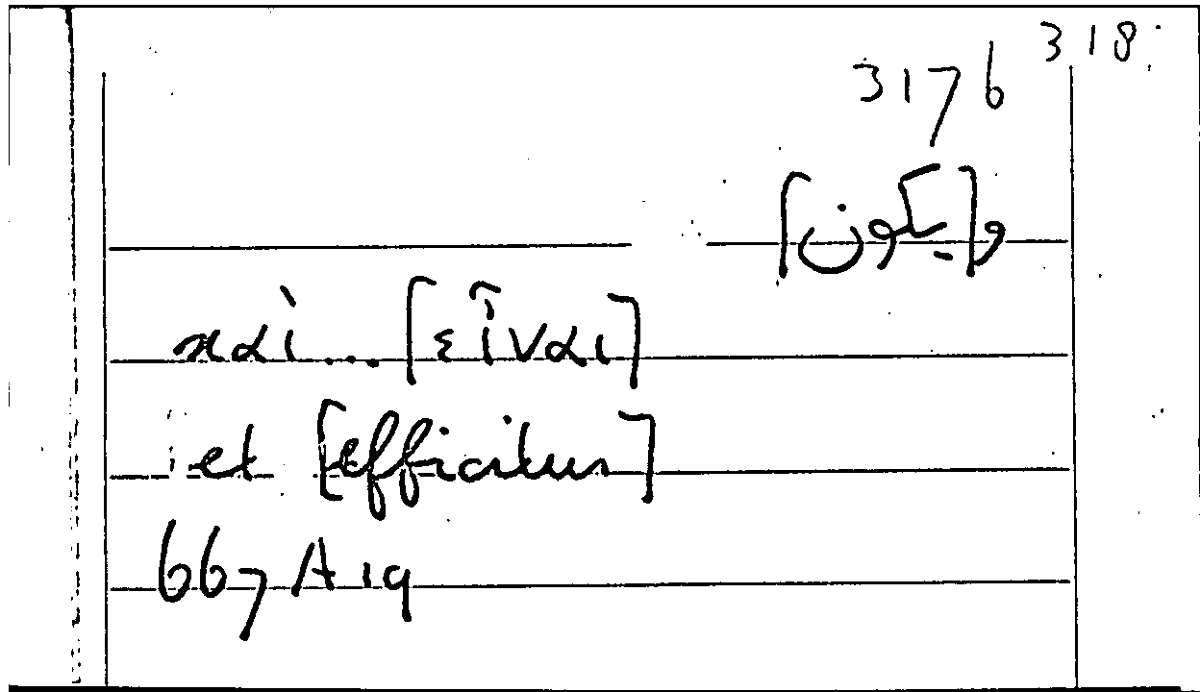 318
317b
و[يكون]
καὶ... [εἶναι]
et [efficitur]
667 A 19